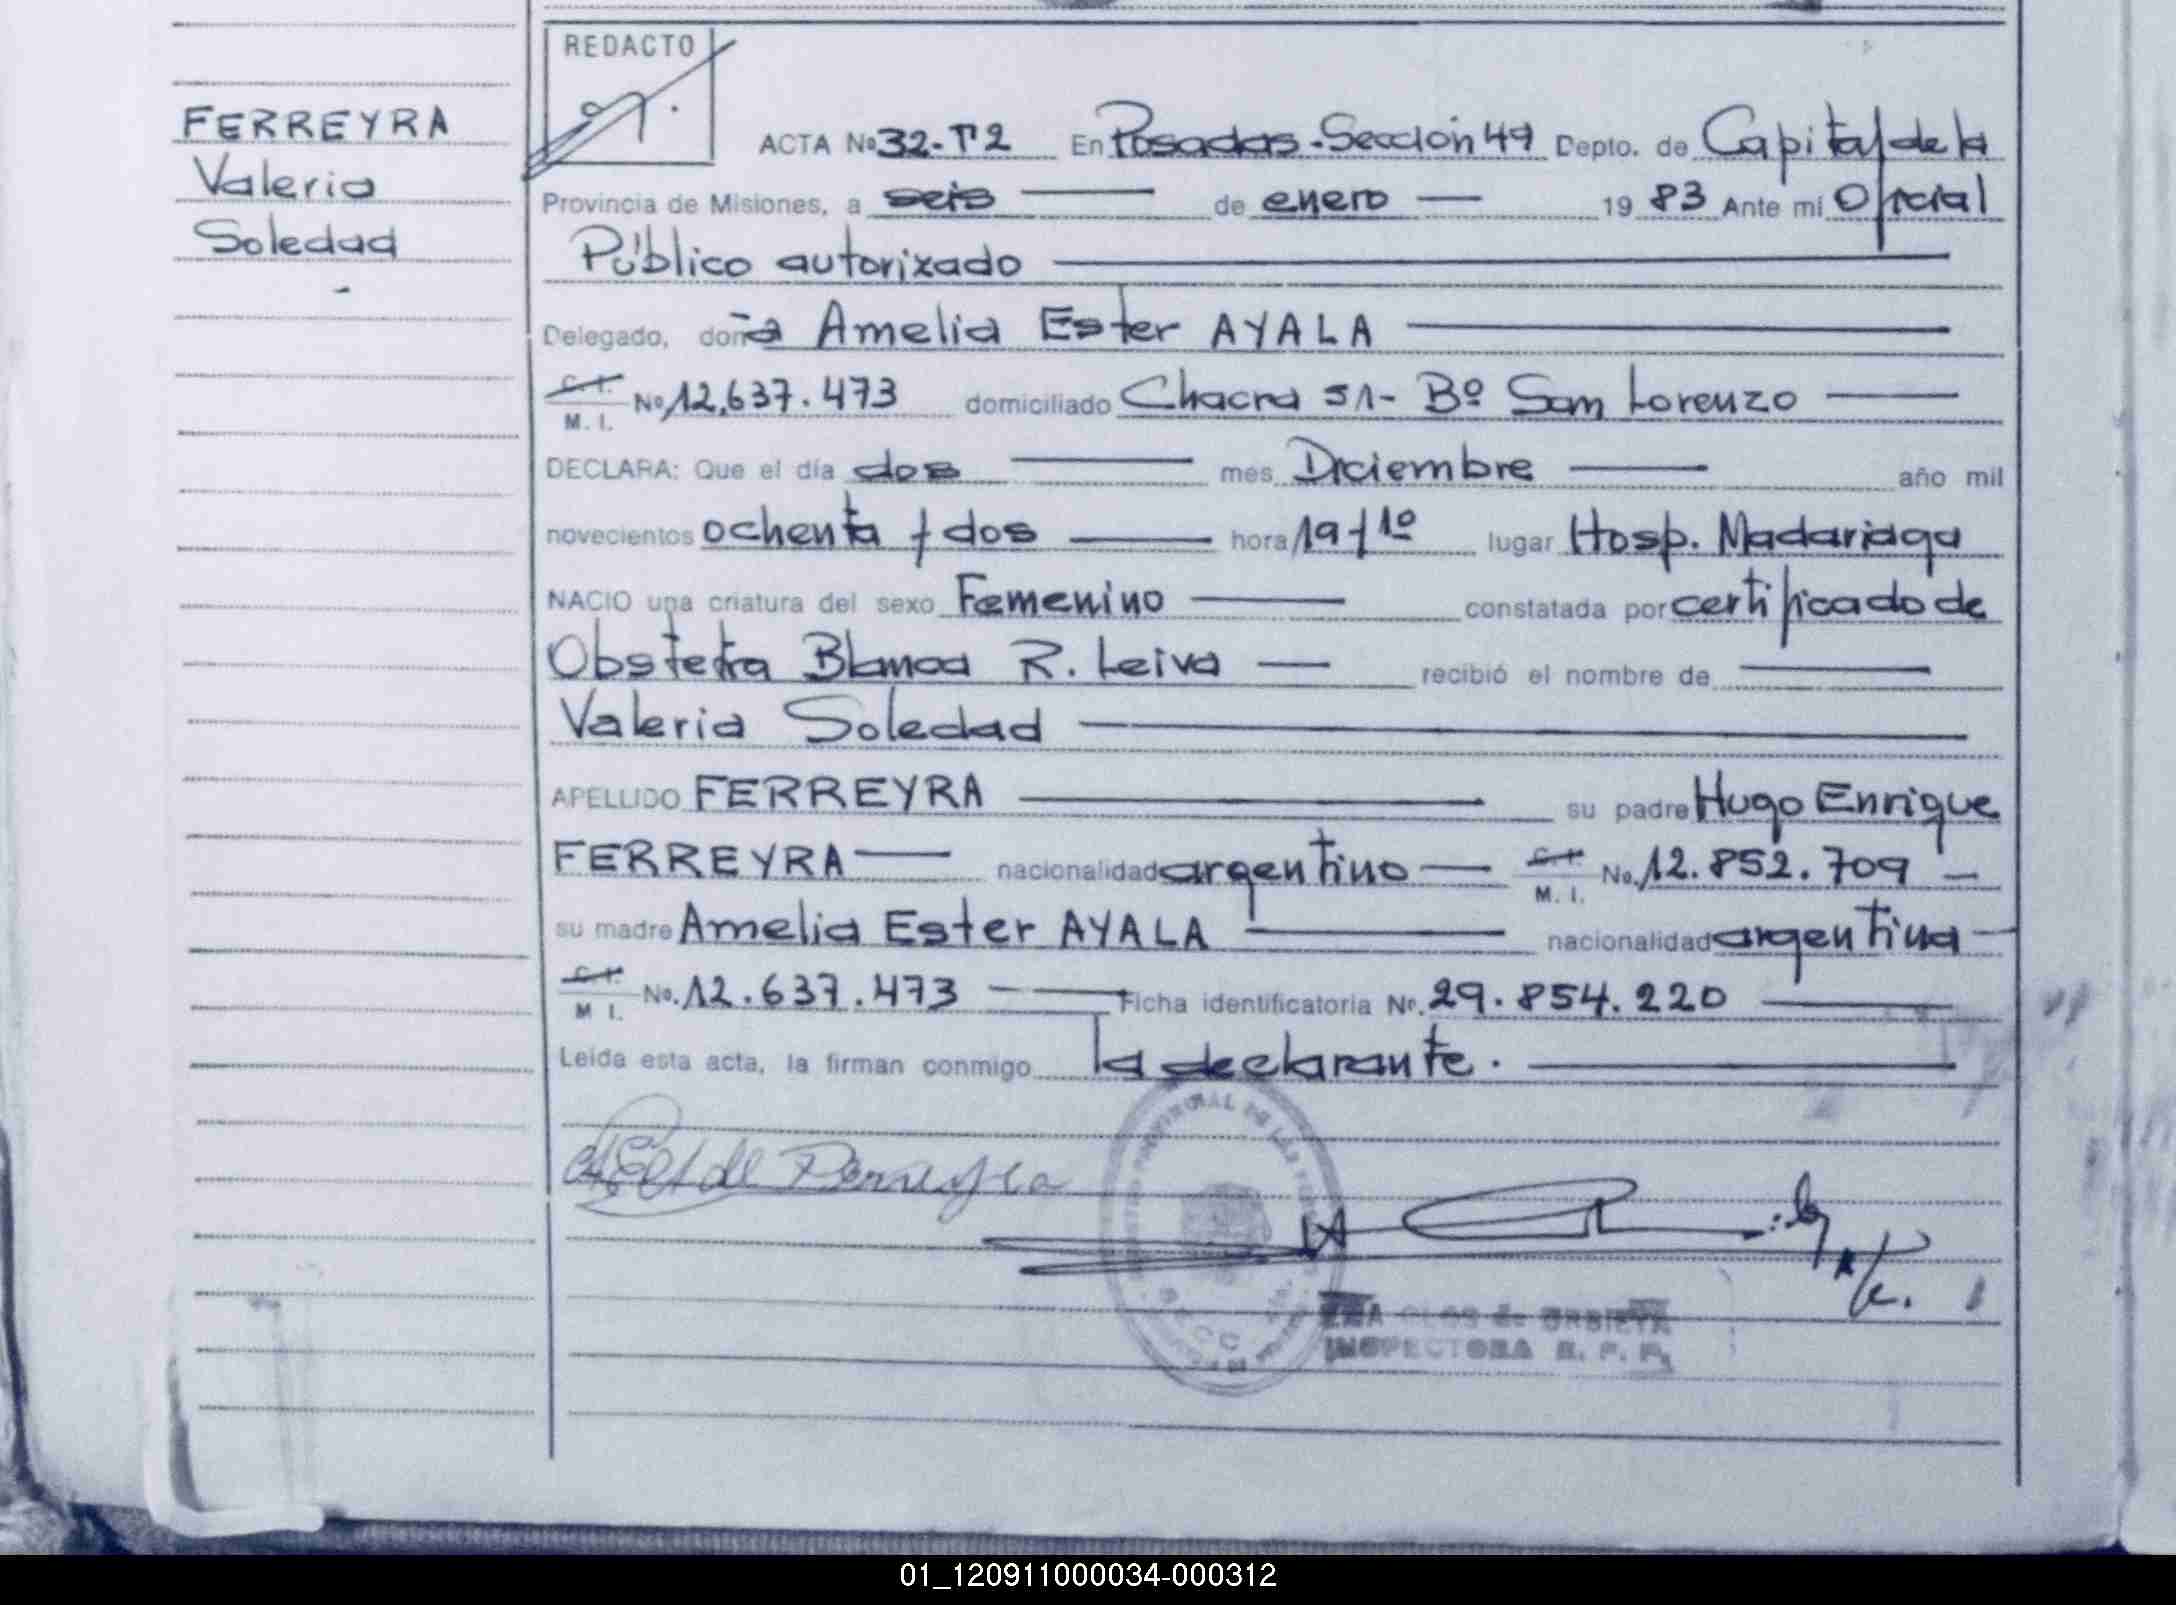 REDACTO
FERREYRA
Valeria
Soledad
ACTA Nº 32-T2 En Posadas-Sección 4ª Depto. de Capital de la
Provincia de Misiones, a seis de enero 19 83 Ante mí Oficial
Público autorizado
Delegado, doña Amelia Ester AYALA
C. I.
M. I. Nº 12.637.473 domiciliado Chacra 51- Bº San Lorenzo
DECLARA: Que el día dos mes Diciembre año mil
novecientos ochenta y dos hora 19 y 10 lugar Hosp. Madariaga
NACIO una criatura del sexo Femenino constatada por certificado de
Obstetra Blanca R. Leiva recibió el nombre de
Valeria Soledad
APELLIDO FERREYRA su padre Hugo Enrique
FERREYRA nacionalidad argentino C. I. M. I. No. 12.852.709
su madre Amelia Ester AYALA nacionalidad argentina
C. I.
M I. No. 12.637.473 Ficha identificatoria Nº. 29.854.220
Leída esta acta, la firman conmigo la declarante.
de Ferreyra
INSPECTORA
01_120911000034-000312